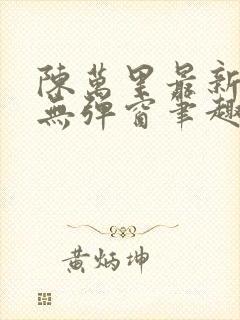 陳萬里最新
無彈窗筆趣
黃炳坤